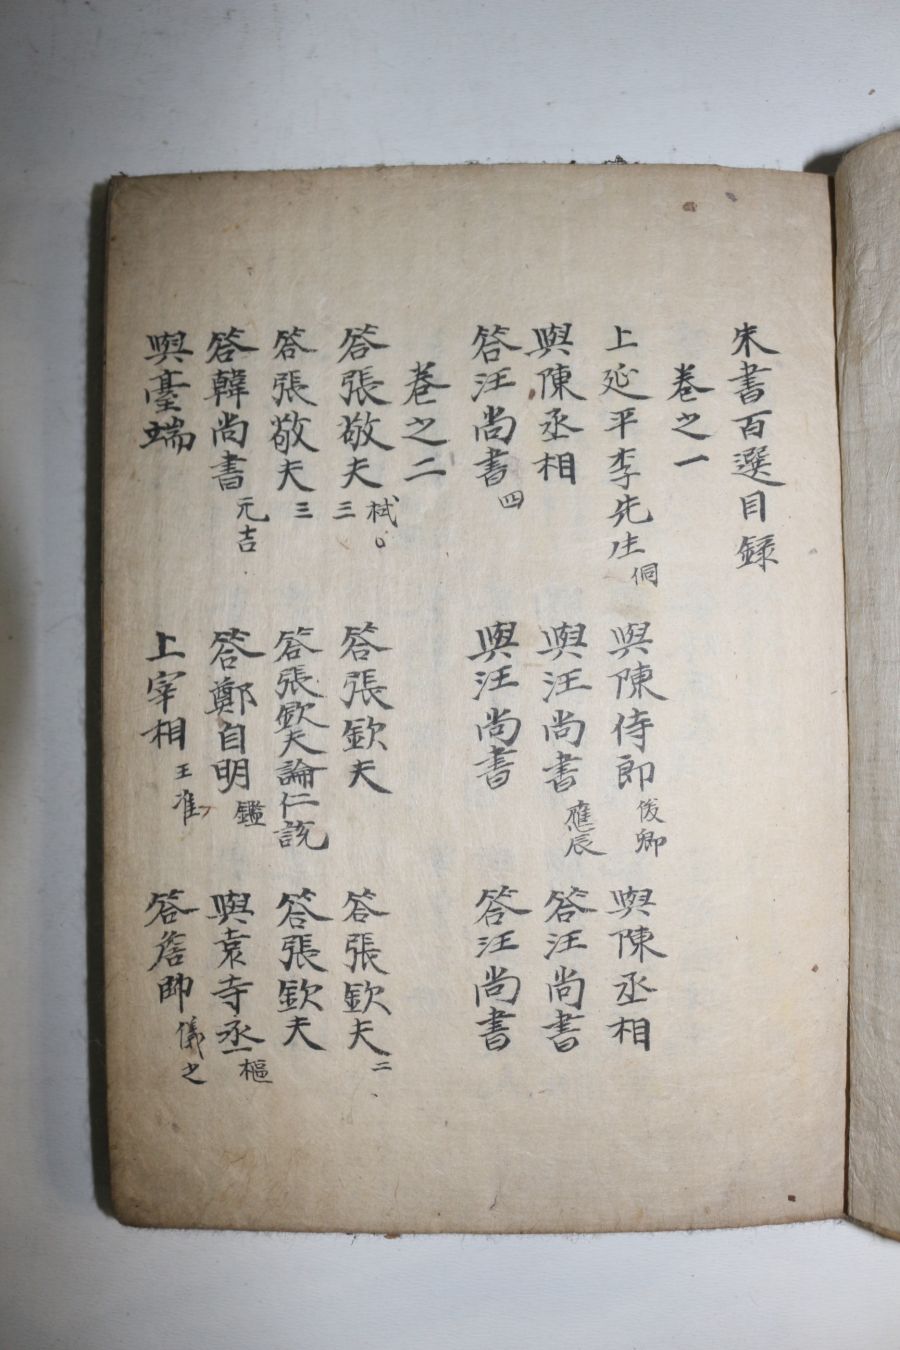 朱書百選目録
卷之一
上延平李先生侗 與陳侍郎俊卿 與陳丞相
與陳丞相 與汪尚書應辰 答汪尚書
答汪尚書四 與汪尚書 答汪尚書
卷之二
答張敬夫栻。三 答張欽夫 答張欽夫二
答張敬夫三 答張欽夫論仁說 答張欽夫
答韓尚書元吉 答鄭自明鑑 與袁寺丞樞
與臺端 上宰相王准 答詹帥儀之